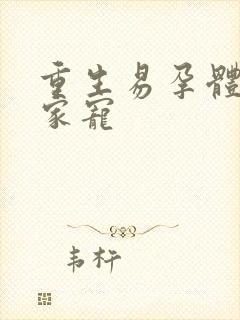 重生易孕體
家寵
韦杍